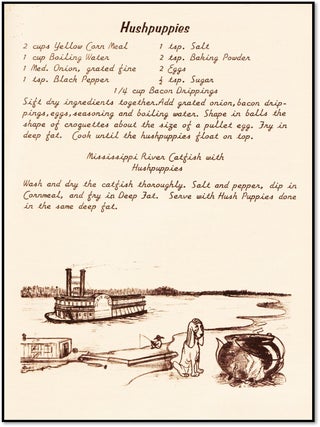 Hushpuppies
2 cups Yellow Corn Meal 1 tsp. Salt
1 cup Boiling Water 2 tsp. Baking Powder
1 Med. Onion, grated fine 2 Eggs
1 tsp. Black Pepper ½ tsp. Sugar
1/4 cup Bacon Drippings
Sift dry ingredients together.Add grated onion,bacon drip-
pings,eggs,seasoning and boiling water. Shape in balls the
shape of croquettes about the size of a pullet egg. Fry in
deep fat. Cook until the hushpuppies float on top.
Mississippi River Catfish with
Hushpuppies
Wash and dry the catfish thoroughly. Salt and pepper, dip in
Cornmeal, and fry in Deep Fat. Serve with Hush Puppies done
in the same deep fat.